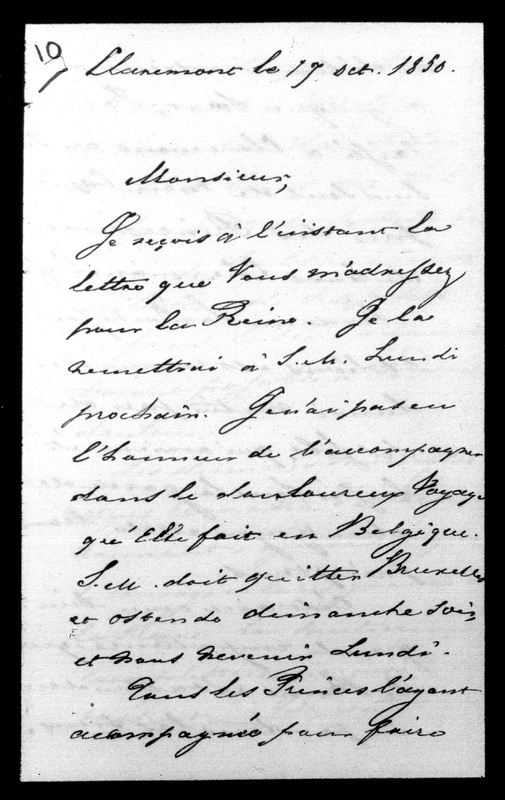 10
Claremont le 17 oct. 1850.
Monsieur,
Je reçois à l'instant la
lettre que Vous m'adressez
pour la Reine. Je la
remettrai à S. M. Lundi
prochain. Je n'ai pas eu
l'honneur de l'accompagner
dans le douloureux Voyage
qu'Elle fait en Belgique.
S. M. doit quitter Bruxelles
et ostende dimanche soir,
et nous revenir Lundi.
Tous les Princes l'ayant
acompagnée pour faire